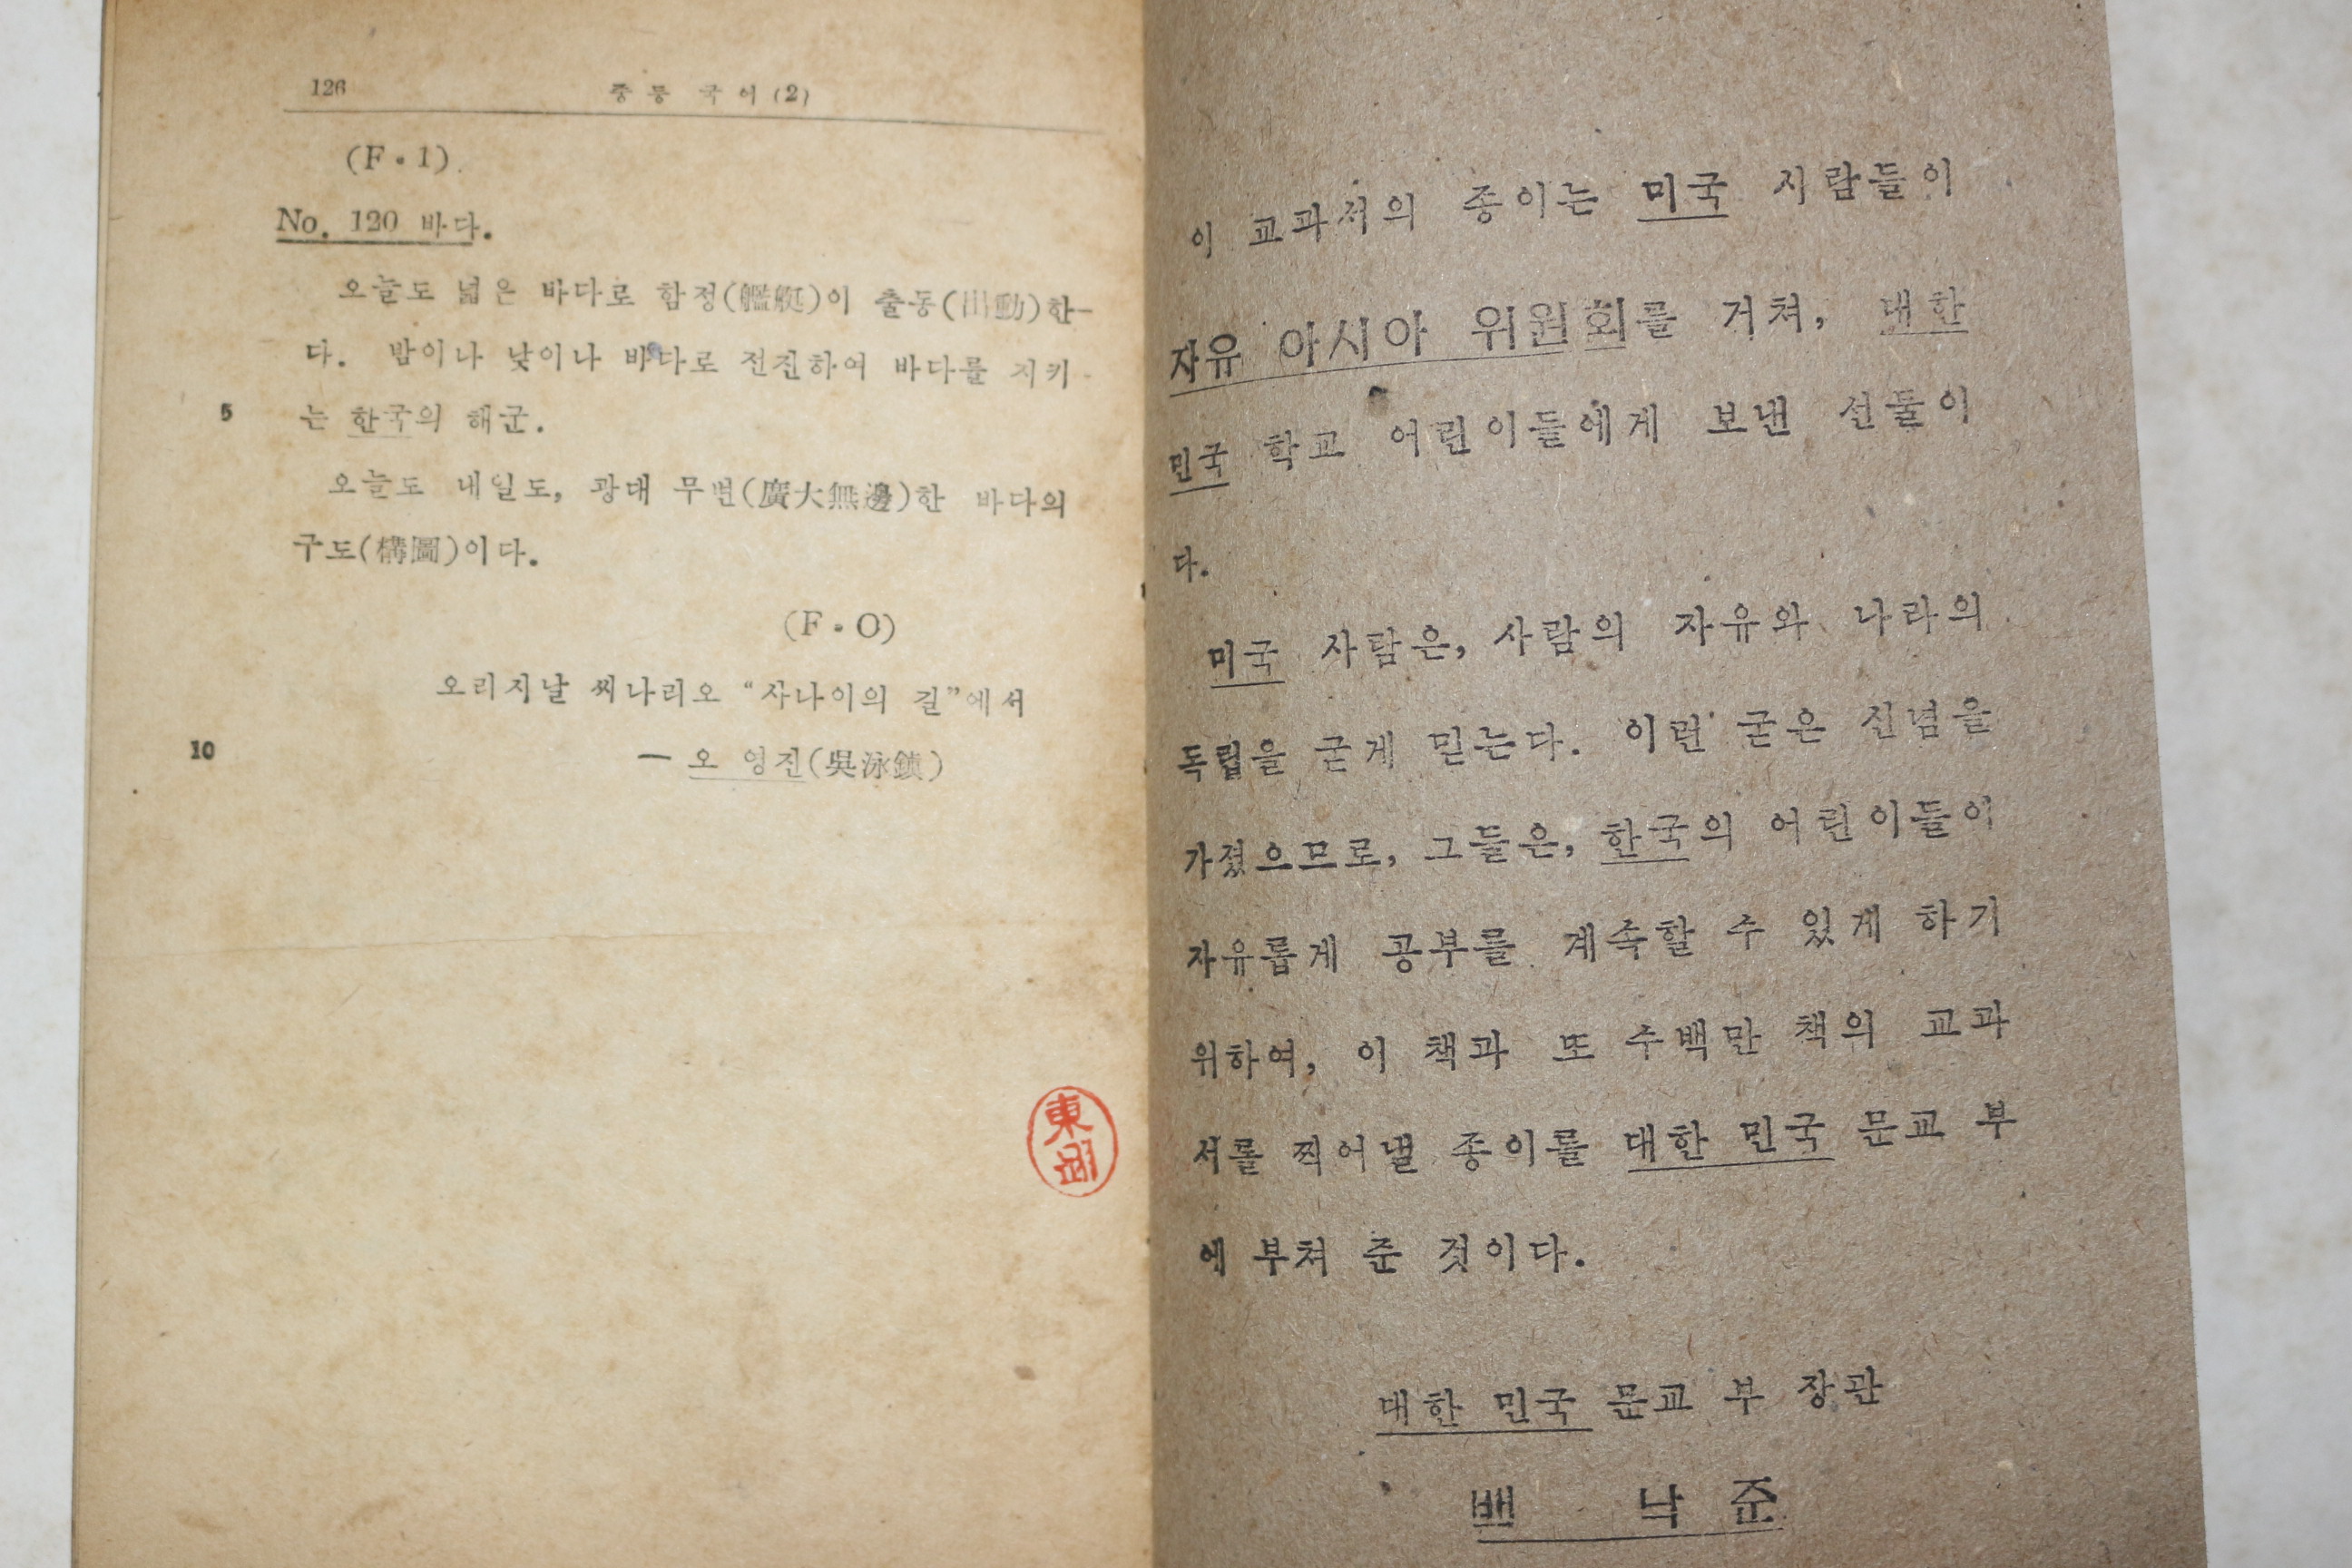 126 중등 국어 (2)
(F·1)
No. 120 바다.
오늘도 넓은 바다로 함정(艦艇)이 출동(出動)한
다. 밤이나 낮이나 바다로 전진하여 바다를 지키
5 는 한국의 해군.
오늘도 내일도, 광대 무변(廣大無邊)한 바다의
구도(構圖)이다.
(F·O)
오리지날 씨나리오 “사나이의 길”에서
10 — 오 영진(吳泳鎭)
東
이 교과서의 종이는 미국 사람들이
자유 아시아 위원회를 거쳐, 대한
민국 학교 어린이들에게 보낸 선물이
다.
미국 사람은, 사람의 자유와 나라의
독립을 굳게 믿는다. 이런 굳은 신념을
가졌으므로, 그들은, 한국의 어린이들이
자유롭게 공부를 계속할 수 있게 하기
위하여, 이 책과 또 수백만 책의 교과
서를 찍어낼 종이를 대한 민국 문교 부
에 부쳐 준 것이다.
대한 민국 문교 부 장관
백 낙 준